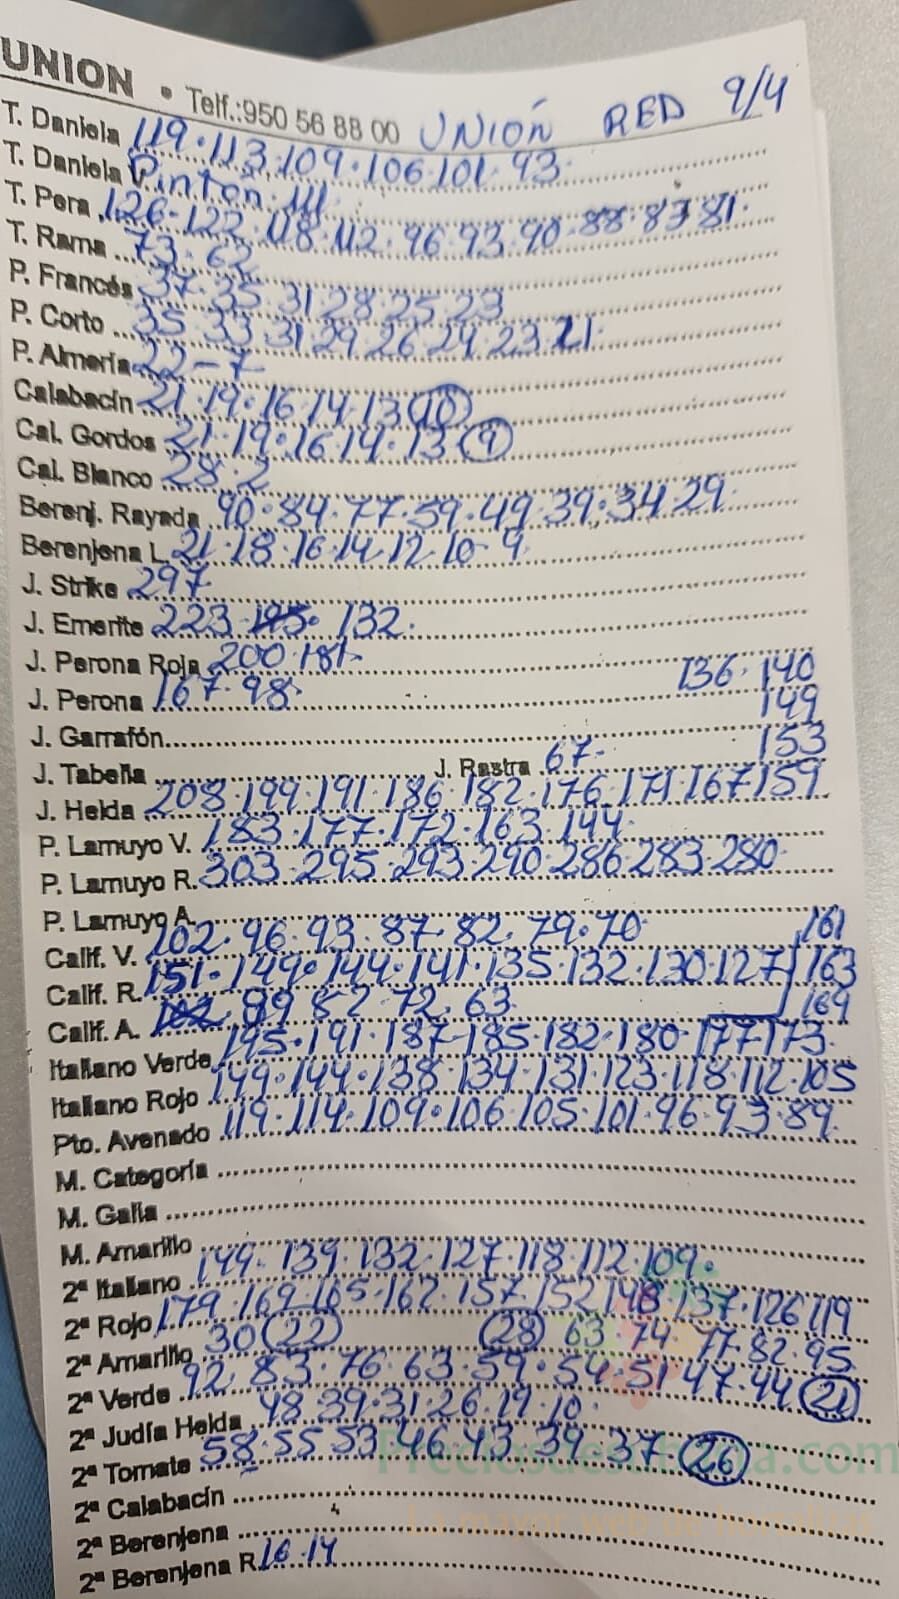 UNION • Telf.:950 56 88 00 UNIÓN RED 9/4
T. Daniela 119·113·109·106·101·93·
T. Daniela Pinton·111·
T. Pera 126-122·118·112·96·93·90·88·83·81·
T. Rama 73·62
P. Francés 37·35·31 28·25·23
P. Corto 35·33·31 29·26·24·23·21·
P. Almería 22-7
Calabacín 21·19·16·14·13 (10)
Cal. Gordos 21·19·16·14·13 (9)
Cal. Blanco 28·2
Berenj. Rayada 90·84·77·59·49·39·34·29·
Berenjena L. 21·18·16·14·12·10-9
J. Strike 297
J. Emerite 223 132·
J. Perona Roja 200·181·
J. Perona 167·98· 136·140
J. Garrafón 149
J. Tabella J. Rastra 67- 153
J. Helda 208·199·191·186·182·176·171·167·159
P. Lamuyo V. 183·177·172·163·144·
P. Lamuyo R. 303·295·293·290·286·283·280·
P. Lamuyo A.
Calif. V. 102·96·93·87·82·79·70 161
Calif. R. 151·149·144·141·135·132·130·127 163
Calif. A. 89 82·72·63· 169
Italiano Verde 195·191·187·185·182·180·177·173·
Italiano Rojo 149·144·138·134·131·123·118·112·105
Pto. Avenado 119·114·109·106·105·101·96·93·89
M. Categoría
M. Galia
M. Amarillo
2ª Italiano 149·139·132·127·118·112·109·
2ª Rojo 179·169·165·162·157·152·148·137·126·119
2ª Amarillo 30 (22) (28) 63 74·77·82·95
2ª Verde 92·83·76·63·59·54·51·47·44 (21)
2ª Judía Helda 48·39·31·26·19·10·
2ª Tomate 58·55·53·46·43·39·37 (26)
Preciosdesubasta.com
2ª Calabacín
La mayor web de hortalizas
2ª Berenjena
2ª Berenjena R. 16·14